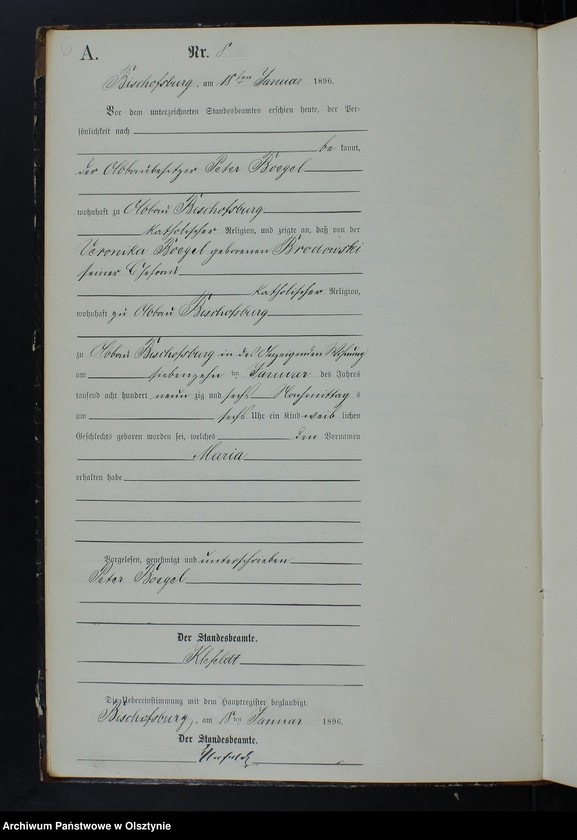 6
A. Nr. 8
Bischofsburg, am 18ten Januar 1896.
Vor dem unterzeichneten Standesbeamten erschien heute, der Per-
sönlichkeit nach
be kannt,
der Abbaubesitzer Peter Boegel
wohnhaft zu Abbau Bischofsburg
katholischer Religion, und zeigte an, daß von der
Veronika Boegel geborenen Brodowski
seiner Ehefrau
katholischer Religion,
wohnhaft zu Abbau Bischofsburg
zu Abbau Bischofsburg in des Anzeigenden Wohnung
am siebenzehn ten Januar des Jahres
tausend acht hundert neun zig und sechs Nachmittag s
um sechs Uhr ein Kind weib lichen
Geschlechts geboren worden sei, welches den Vornamen
Maria
erhalten habe
Vorgelesen, genehmigt und unterschrieben
Peter Boegel
Der Standesbeamte.
Klefeldt
Die Uebereinstimmung mit dem Hauptregister beglaubigt.
Bischofsburg, am 18ten Januar 1896.
Der Standesbeamte.
Klefeldt
Archiwum Państwowe w Olsztynie